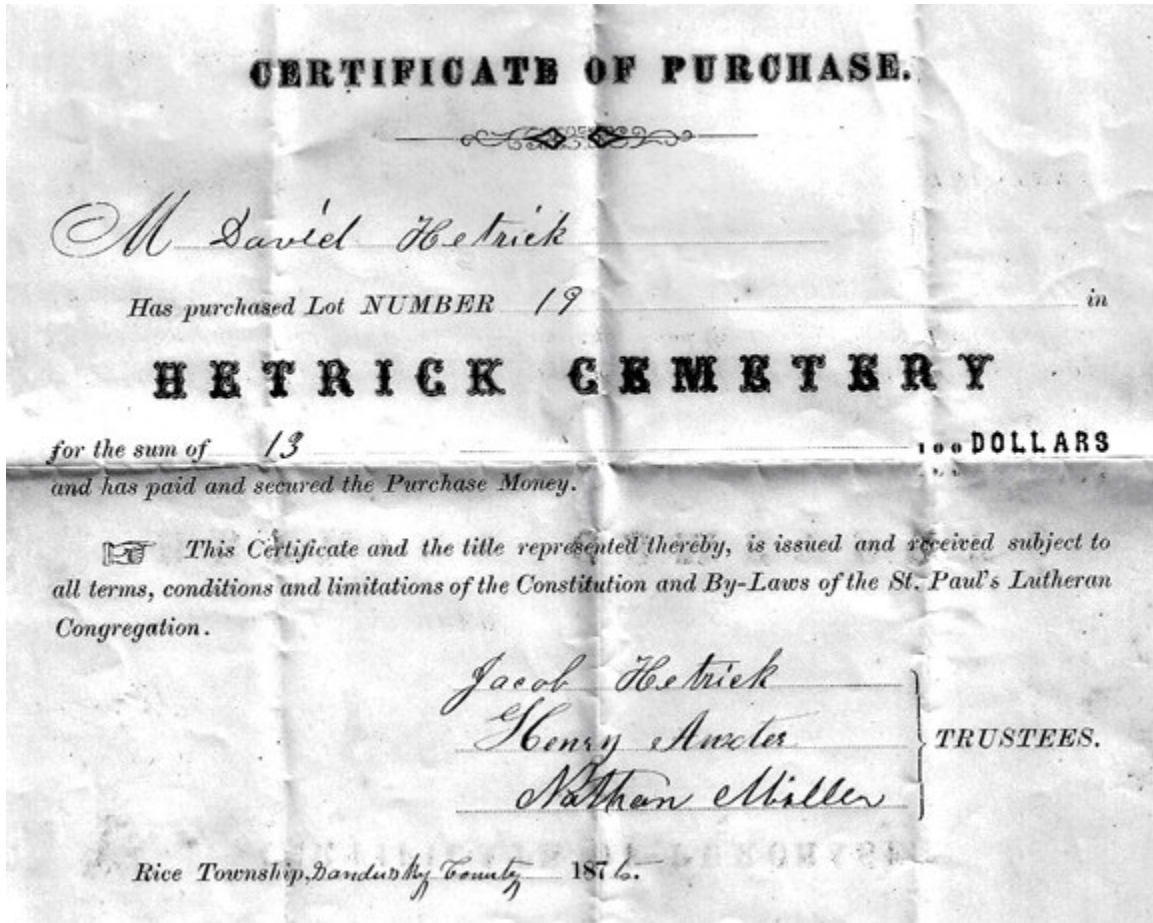 CERTIFICATE OF PURCHASE.
M David Hetrick
Has purchased Lot NUMBER 19 in
HETRICK CEMETERY
for the sum of 13 100 DOLLARS
and has paid and secured the Purchase Money.
This Certificate and the title represented thereby, is issued and received subject to
all terms, conditions and limitations of the Constitution and By-Laws of the St. Paul's Lutheran
Congregation.
Jacob Hetrick
Henry Anxter
Nathan Miller
TRUSTEES.
Rice Township, Sandusky County 1876.